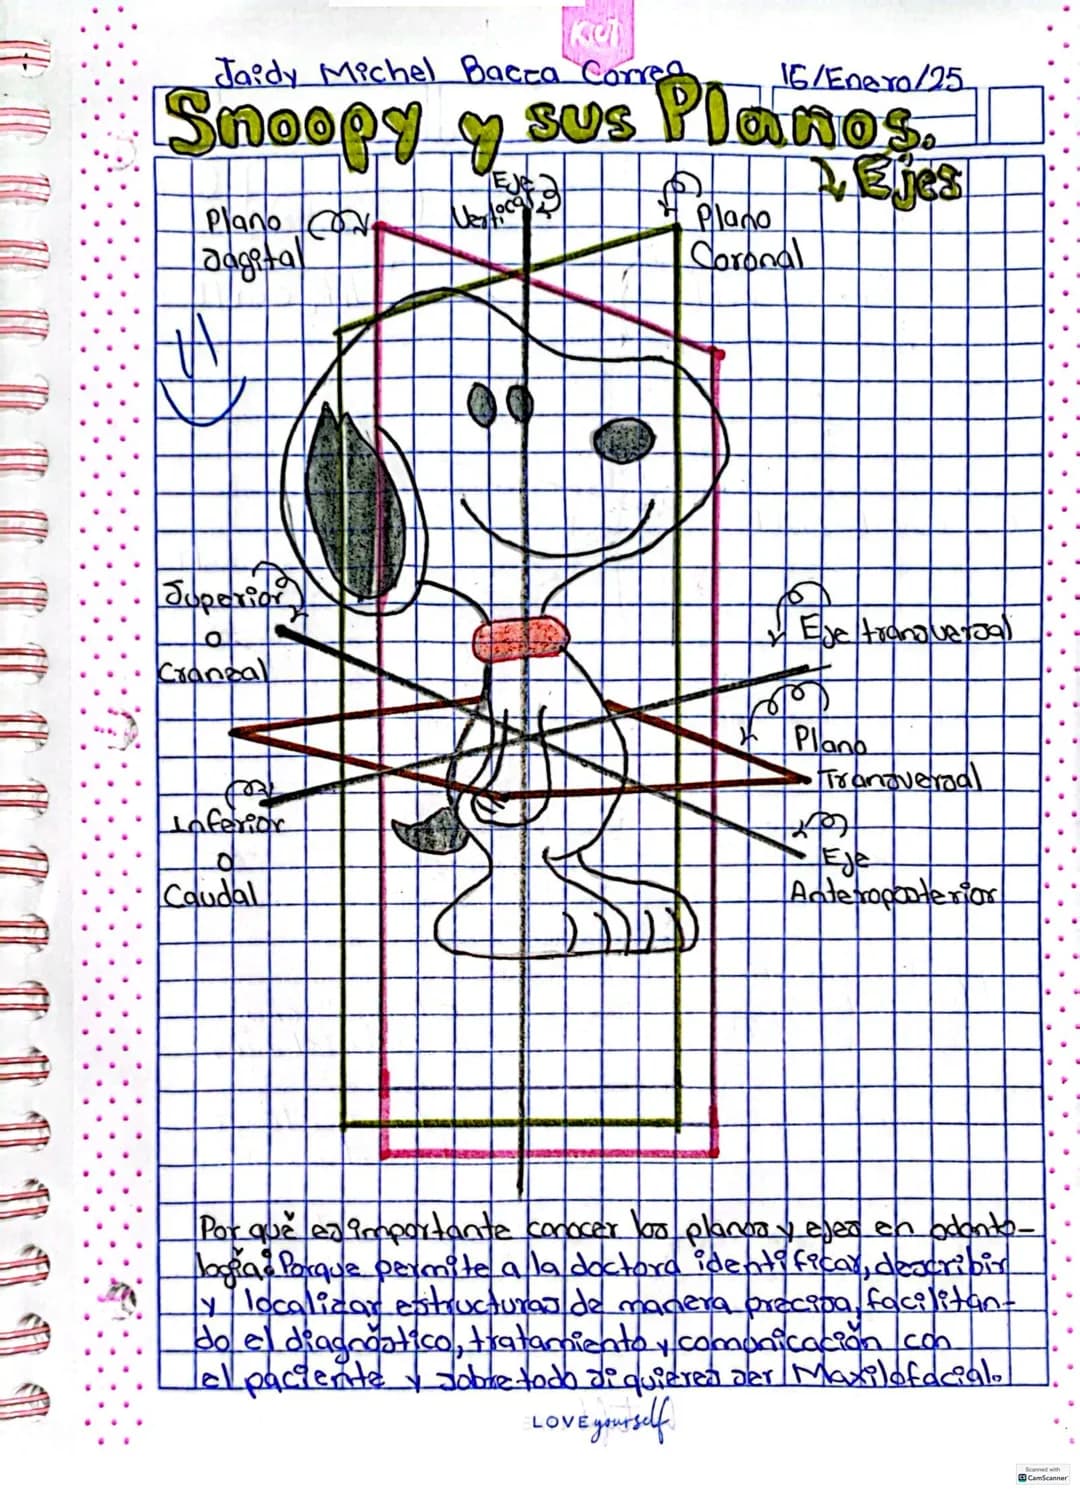 Kiut
Jaidy Michel Bacca Correa 16/Enero/25
Snoopy y sus Planos.
Ejes
Eje
Vertical
Plano
Sagital
Plano
Coronal
Superior
o
Craneal
Eje transversal
Plano
Transversal
Inferior
o
Caudal
Eje
Anteroposterior
Por qué es importante conocer los planos y ejes en odonto-
logía? Porque permite a la doctora identificar, describir
y localizar estructuras de manera precisa, facilitan-
do el diagnóstico, tratamiento y comunicación con
el paciente y sobre todo si quieres ser Maxilofacial.
LOVE yourself
Scanned with
CS CamScanner